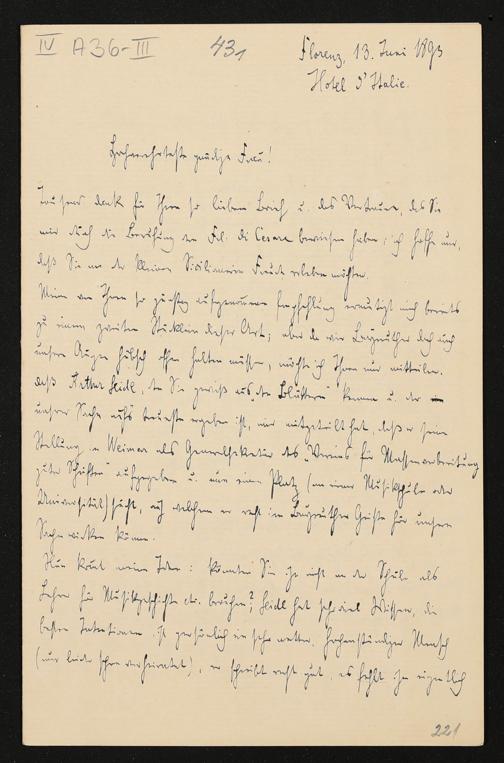 IV A36-III 431
Florenz, 13. Juni 1893
Hotel d'Italie.
Hochverehrteste gnädige Frau!
Tausend Dank für Ihren so lieben Brief u. das Vertrauen, das Sie
mir durch die Berufung der Frl. di Cesare bewiesen haben; ich hoffe nur,
daß Sie an der kleinen Sicilianerin Freude erleben möchten.
Meine von Ihnen so günstig aufgenommene Empfehlung ermutigt mich bereits
zu einem zweiten Stücklein dieser Art; aber da wir Bayreuther doch auch
unsere Augen hübsch offen halten müssen, möchte ich Ihnen nur mitteilen,
daß Arthur Seidl, den Sie gewiß aus den „Blättern" kennen u. der
unserer Sache aufs treueste ergeben ist, mir mitgeteilt hat, daß er seine
Stellung in Weimar als Generalsekretär des „Vereins für Massenverbreitung
guter Schriften" aufgegeben u. nun einen Platz (an einer Musikschule oder
Universität) sucht, auf welchem er recht im Bayreuther Geiste für unsere
Sache wirken könne.
Nun kommt meine Idee: könnten Sie ihn nicht an die Schule als
Lehrer für Musikgeschichte etc. berufen? Seidl hat sehr viel Wissen, die
besten Intentionen, ist persönlich ein sehr netter, hochanständiger Mensch
(nur leider schon verheiratet), er schreibt recht gut, es fehlt ihm eigentlich
221